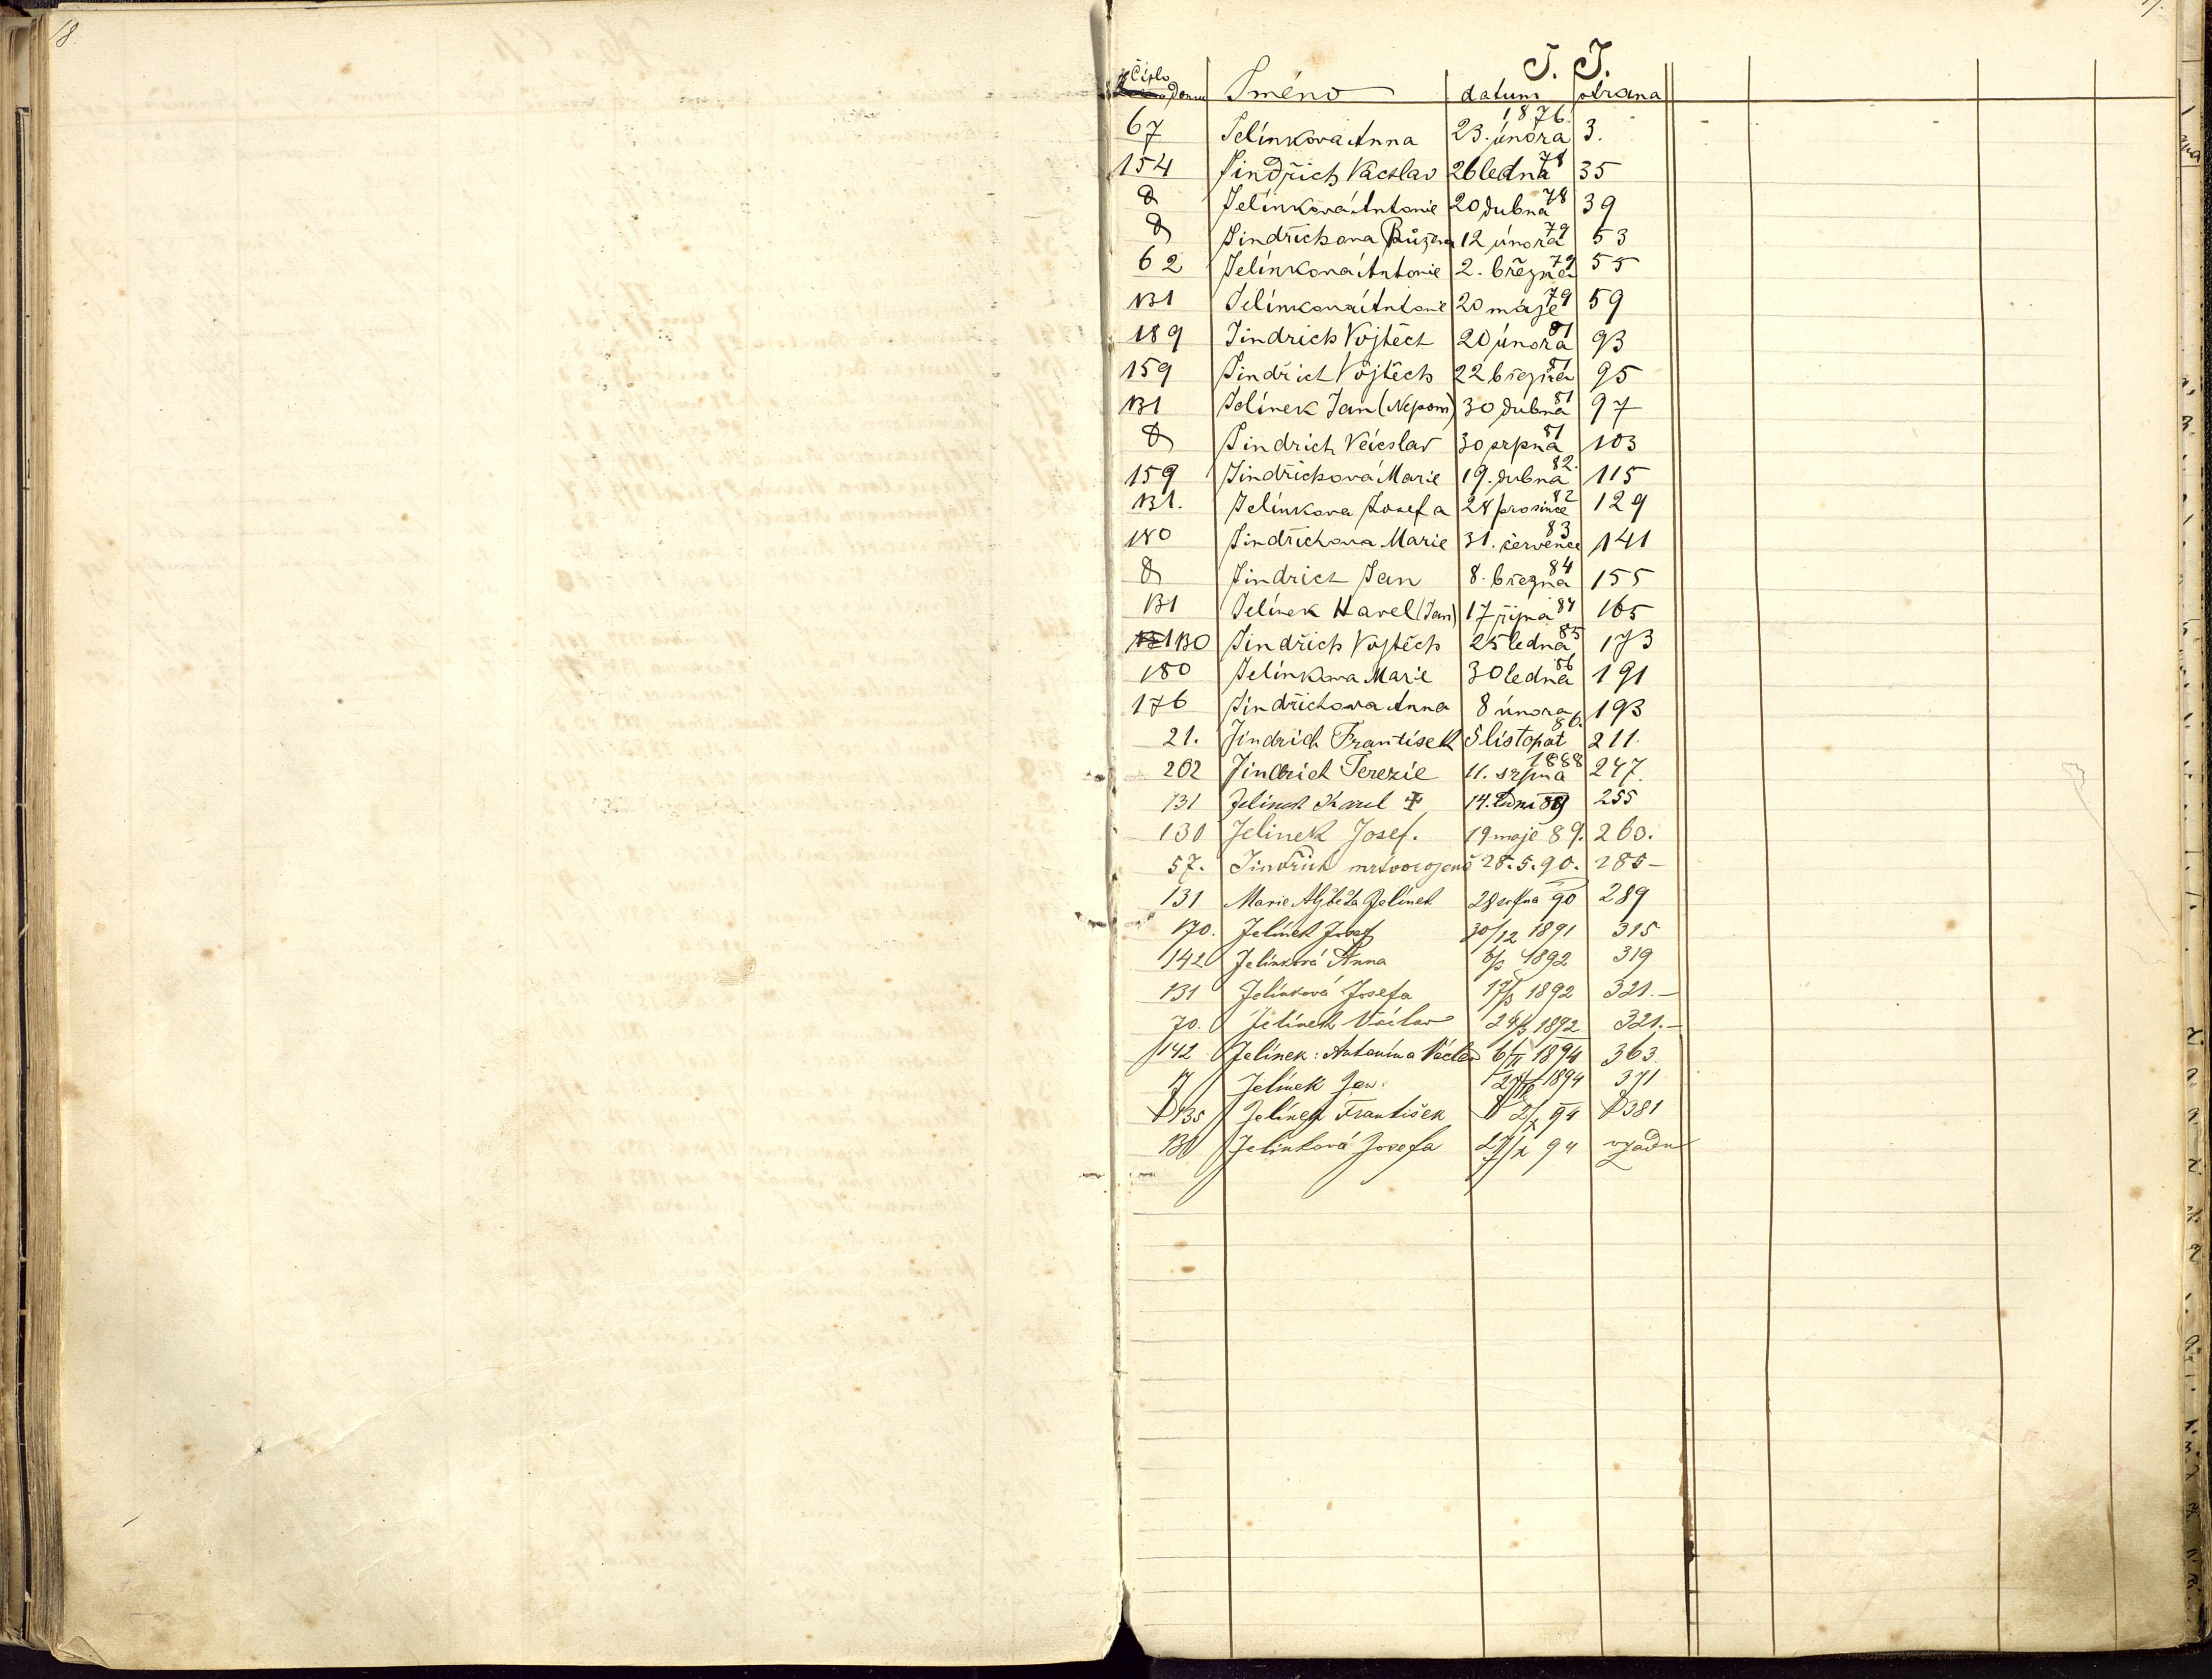 18.
J. J.
Číslo Domu Jméno datum strana
67 Jelínkova Anna 23. února 1876. 3.
154 Jindřich Václav 26 ledna 78 35
D Jelínková Antonie 20 dubna 78 39
D Jindřichova Růžena 12 února 79 53
62 Jelínková Antonie 2. března 79 55
131 Jelínková Antonie 20 máje 79 59
189 Jindrich Vojtěch 20 února 81 93
159 Jindřich Vojtěch 22 března 81 95
131 Jelínek Jan (Nepom) 30 dubna 81 97
D Jindrich Václav 30 srpna 81 103
159 Jindřichová Marie 19. dubna 82. 115
131. Jelínkova Josefa 28 prosince 82 129
180 Jindřichova Marie 31. července 83 141
D Jindrich Jan 8. března 84 155
131 Jelínek Havel (Jan) 17 října 84 165
130 Jindřich Vojtěch 25 ledna 85 173
180 Jelínkova Marie 30 ledna 86 191
176 Jindřichova Anna 8 února 193
21. Jindrich František 5 listopat 86. 211.
202 Jindrich Terezie 11. srpna 1888 247.
131 Jelínek Karel 14. 89 255
130 Jelinek Josef. 19 maje 89. 263.
57. Jindřich mrtvorozené 28. 5. 90. 285-
131 Marie Alžběta Jelínek 28 srpna 90 289
170. Jelínek Josef 30/12 1891 315
142 Jelínková Anna 6/3 1892 319
131 Jelínková Josefa 17/3 1892 321.-
70. Jelínek Václav 24/3 1892 321.-
142 Jelínek: Antonín a Václav 6/II 1894 363.
17 Jelínek Jan. 1894 371
135 Jelínek František 2/X 94 381
130 Jelínková Josefa 27/X 94 vzadu